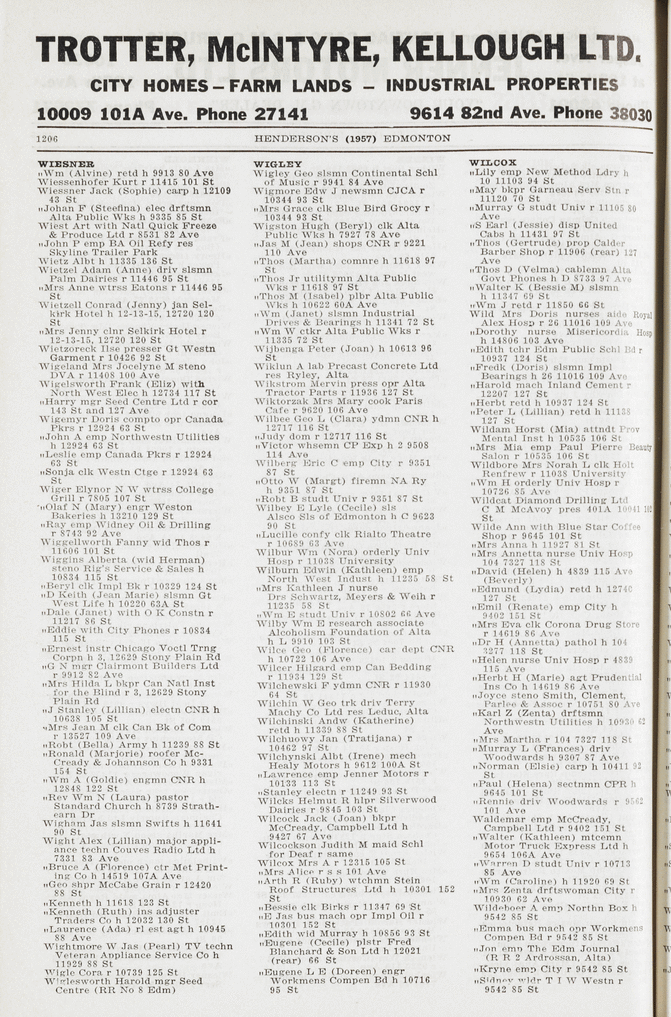 TROTTER, McINTYRE, KELLOUGH LTD.
CITY HOMES – FARM LANDS – INDUSTRIAL PROPERTIES
10009 101A Ave. Phone 27141 9614 82nd Ave. Phone 38030
1206 HENDERSON'S (1957) EDMONTON
WIESNER
„Wm (Alvine) retd h 9913 80 Ave
Wiessenhofer Kurt r 11415 101 St
Wiessner Jack (Sophie) carp h 12109
43 St
„Johan F (Steefina) elec drftsmn
Alta Public Wks h 9335 85 St
Wiest Art with Natl Quick Freeze
& Produce Ltd r 8531 82 Ave
„John P emp BA Oil Refy res
Skyline Trailer Park
Wietz Albt h 11335 136 St
Wietzel Adam (Anne) driv slsmn
Palm Dairies r 11446 95 St
„Mrs Anne wtrss Eatons r 11446 95
St
Wietzell Conrad (Jenny) jan Sel-
kirk Hotel h 12-13-15, 12720 120
St
„Mrs Jenny clnr Selkirk Hotel r
12-13-15, 12720 120 St
Wietzoreck Ilse presser Gt Westn
Garment r 10426 92 St
Wigeland Mrs Jocelyne M steno
DVA r 11408 100 Ave
Wigelsworth Frank (Eliz) with
North West Elec h 12734 117 St
„Harry mgr Seed Centre Ltd r cor
143 St and 127 Ave
Wigemyr Doris compto opr Canada
Pkrs r 12924 63 St
„John A emp Northwestn Utilities
h 12924 63 St
„Leslie emp Canada Pkrs r 12924
63 St
„Sonja clk Westn Ctge r 12924 63
St
Wiger Elynor N W wtrss College
Grill r 7805 107 St
„Olaf N (Mary) engr Weston
Bakeries h 13210 129 St
„Ray emp Widney Oil & Drilling
r 8743 92 Ave
Wiggellworth Fanny wid Thos r
11606 101 St
Wiggins Alberta (wid Herman)
steno Rig's Service & Sales h
10834 115 St
„Beryl clk Impl Bk r 10329 124 St
„D Keith (Jean Marie) slsmn Gt
West Life h 10220 63A St
„Dale (Janet) with O K Constn r
11217 86 St
„Eddie with City Phones r 10834
115 St
„Ernest instr Chicago Voctl Trng
Corpn h 3, 12629 Stony Plain Rd
„G N mgr Clairmont Builders Ltd
r 9912 82 Ave
„Mrs Hilda L bkpr Can Natl Inst
for the Blind r 3, 12629 Stony
Plain Rd
„J Stanley (Lillian) electn CNR h
10638 105 St
„Mrs Jean M clk Can Bk of Com
r 13527 109 Ave
„Robt (Bella) Army h 11239 88 St
„Ronald (Marjorie) roofer Mc-
Cready & Johannson Co h 9331
154 St
„Wm A (Goldie) engmn CNR h
12848 122 St
„Rev Wm N (Laura) pastor
Standard Church h 8739 Strath-
earn Dr
Wigham Jas slsmn Swifts h 11641
90 St
Wight Alex (Lillian) major appli-
ance techn Couves Radio Ltd h
7331 83 Ave
„Bruce A (Florence) ctr Met Print-
ing Co h 14519 107A Ave
„Geo shpr McCabe Grain r 12420
88 St
„Kenneth h 11618 123 St
„Kenneth (Ruth) ins adjuster
Traders Co h 12032 130 St
„Laurence (Ada) rl est agt h 10945
88 Ave
Wightmore W Jas (Pearl) TV techn
Veteran Appliance Service Co h
11929 88 St
Wigle Cora r 10739 125 St
Wiglesworth Harold mgr Seed
Centre (RR No 8 Edm)
WIGLEY
Wigley Geo slsmn Continental Schl
of Music r 9941 84 Ave
Wigmore Edw J newsmn CJCA r
10344 93 St
„Mrs Grace clk Blue Bird Grocy r
10344 93 St
Wigston Hugh (Beryl) clk Alta
Public Wks h 7927 78 Ave
„Jas M (Jean) shops CNR r 9221
110 Ave
„Thos (Martha) comnre h 11618 97
St
„Thos Jr utilitymn Alta Public
Wks r 11618 97 St
„Thos M (Isabel) plbr Alta Public
Wks h 10622 60A Ave
„Wm (Janet) slsmn Industrial
Drives & Bearings h 11341 72 St
„Wm W ctkr Alta Public Wks r
11335 72 St
Wijbenga Peter (Joan) h 10613 96
St
Wiklun A lab Precast Concrete Ltd
res Ryley, Alta
Wikstrom Mervin press opr Alta
Tractor Parts r 11936 127 St
Wiktorzak Mrs Mary cook Paris
Cafe r 9620 106 Ave
Wilbee Geo L (Clara) ydmn CNR h
12717 116 St
„Judy dom r 12717 116 St
„Victor whsemn CP Exp h 2 9508
114 Ave
Wilberg Eric C emp City r 9351
87 St
„Otto W (Margt) firemn NA Ry
h 9351 87 St
„Robt B studt Univ r 9351 87 St
Wilbey E Lyle (Cecile) sls
Alsco Sls of Edmonton h C 9623
90 St
„Lucille confy clk Rialto Theatre
r 10689 63 Ave
Wilbur Wm (Nora) orderly Univ
Hosp r 11038 University
Wilburn Edwin (Kathleen) emp
North West Indust h 11235 58 St
„Mrs Kathleen J nurse
Drs Schwartz, Meyers & Weih r
11235 58 St
„Wm E studt Univ r 10802 66 Ave
Wilby Wm E research associate
Alcoholism Foundation of Alta
h L 9910 103 St
Wilce Geo (Florence) car dept CNR
h 10722 106 Ave
Wilcer Hilgard emp Can Bedding
r 11934 129 St
Wilchewski F ydmn CNR r 11930
64 St
Wilchin W Geo trk driv Terry
Machy Co Ltd res Leduc, Alta
Wilchinski Andw (Katherine)
retd h 11339 88 St
Wilchuowy Jan (Tratijana) r
10462 97 St
Wilchynski Albt (Irene) mech
Healy Motors h 9612 100A St
„Lawrence emp Jenner Motors r
10133 113 St
„Stanley electn r 11249 93 St
Wilcks Helmut R hlpr Silverwood
Dairies r 9845 103 St
Wilcock Jack (Joan) bkpr
McCready, Campbell Ltd h
9427 67 Ave
Wilcockson Judith M maid Schl
for Deaf r same
Wilcox Mrs A r 12315 105 St
„Mrs Alice r s s 101 Ave
„Arth R (Ruby) wtchmn Stein
Roof Structures Ltd h 10301 152
St
„Bessie clk Birks r 11347 69 St
„E Jas bus mach opr Impl Oil r
10301 152 St
„Edith wid Murray h 10856 93 St
„Eugene (Cecile) plstr Fred
Blanchard & Son Ltd h 12021
(rear) 66 St
„Eugene L E (Doreen) engr
Workmens Compen Bd h 10716
95 St
WILCOX
„Lily emp New Method Ldry h
10 11103 94 St
„May bkpr Garneau Serv Stn r
11120 70 St
„Murray G studt Univ r 11105 80
Ave
„S Earl (Jessie) disp United
Cabs h 11431 97 St
„Thos (Gertrude) prop Calder
Barber Shop r 11906 (rear) 127
Ave
„Thos D (Velma) cablemn Alta
Govt Phones h D 8733 97 Ave
„Walter K (Bessie M) slsmn
h 11347 69 St
„Wm J retd r 11850 66 St
Wild Mrs Doris nurses aide Royal
Alex Hosp r 26 11016 109 Ave
„Dorothy nurse Misericordia Hosp
h 14806 103 Ave
„Edith tchr Edm Public Schl Bd r
10937 124 St
„Fredk (Doris) slsmn Impl
Bearings h 26 11016 109 Ave
„Harold mach Inland Cement r
12207 127 St
„Herbt retd h 10937 124 St
„Peter L (Lillian) retd h 11138
127 St
Wildam Horst (Mia) attndt Prov
Mental Inst h 10535 106 St
„Mrs Mia emp Paul Pierre Beauty
Salon r 10535 106 St
Wildbore Mrs Norah L clk Holt
Renfrew r 11038 University
„Wm H orderly Univ Hosp r
10726 85 Ave
Wildcat Diamond Drilling Ltd
C M McAvoy pres 401A 10041 102
St
Wilde Ann with Blue Star Coffee
Shop r 9645 101 St
„Mrs Anna h 11927 81 St
„Mrs Annetta nurse Univ Hosp
104 7327 118 St
„David (Helen) h 4839 115 Ave
(Beverly)
„Edmund (Lydia) retd h 12740
127 St
„Emil (Renate) emp City h
9402 151 St
„Mrs Eva clk Corona Drug Store
r 14619 86 Ave
„Dr H (Annetta) pathol h 104
3277 118 St
„Helen nurse Univ Hosp r 4839
115 Ave
„Herbt H (Marie) agt Prudential
Ins Co h 14619 86 Ave
„Joyce steno Smith, Clement,
Parlee & Assoc r 10751 80 Ave
„Karl Z (Zenta) drftsmn
Northwestn Utilities h 10930 62
Ave
„Mrs Martha r 104 7327 118 St
„Murray L (Frances) driv
Woodwards h 9307 87 Ave
„Norman (Elsie) carp h 10411 92
St
„Paul (Helena) sectnmn CPR h
9645 101 St
„Rennie driv Woodwards r 9562
101 Ave
Waldemar emp McCready,
Campbell Ltd r 9402 151 St
„Walter (Kathleen) mtcemn
Motor Truck Express Ltd h
9654 106A Ave
„Warren D studt Univ r 10713
85 Ave
„Wm (Caroline) h 11920 69 St
„Mrs Zenta drftswoman City r
10930 62 Ave
Wildeboer A emp Northn Box h
9542 85 St
„Emma bus mach opr Workmens
Compen Bd r 9542 85 St
„Jon emp The Edm Journal
(R R 2 Ardrossan, Alta)
„Kryne emp City r 9542 85 St
„Sidney wldr T I W Westn r
9542 85 St